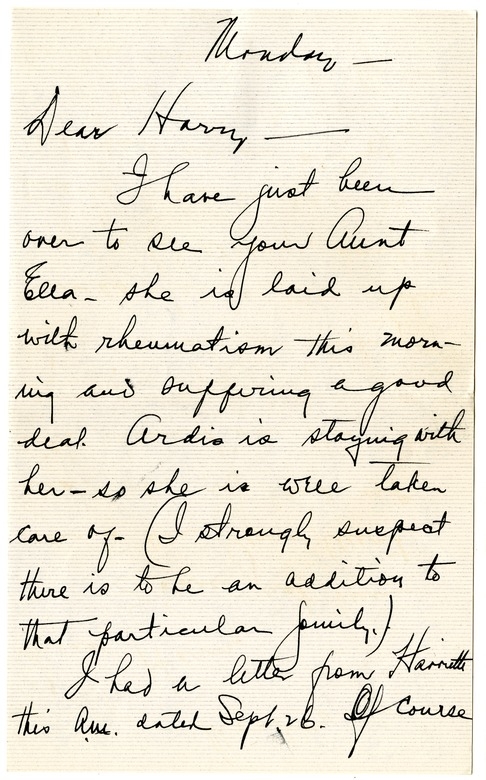 Monday —
Dear Harry —
I have just been
over to see your Aunt
Ella — she is laid up
with rheumatism this morn-
ing and suffering a good
deal. Ardis is staying with
her — so she is well taken
care of — (I strongly suspect
there is to be an addition to
that particular family.)
I had a letter from Harriette
this am. dated Sept. 26. Of course